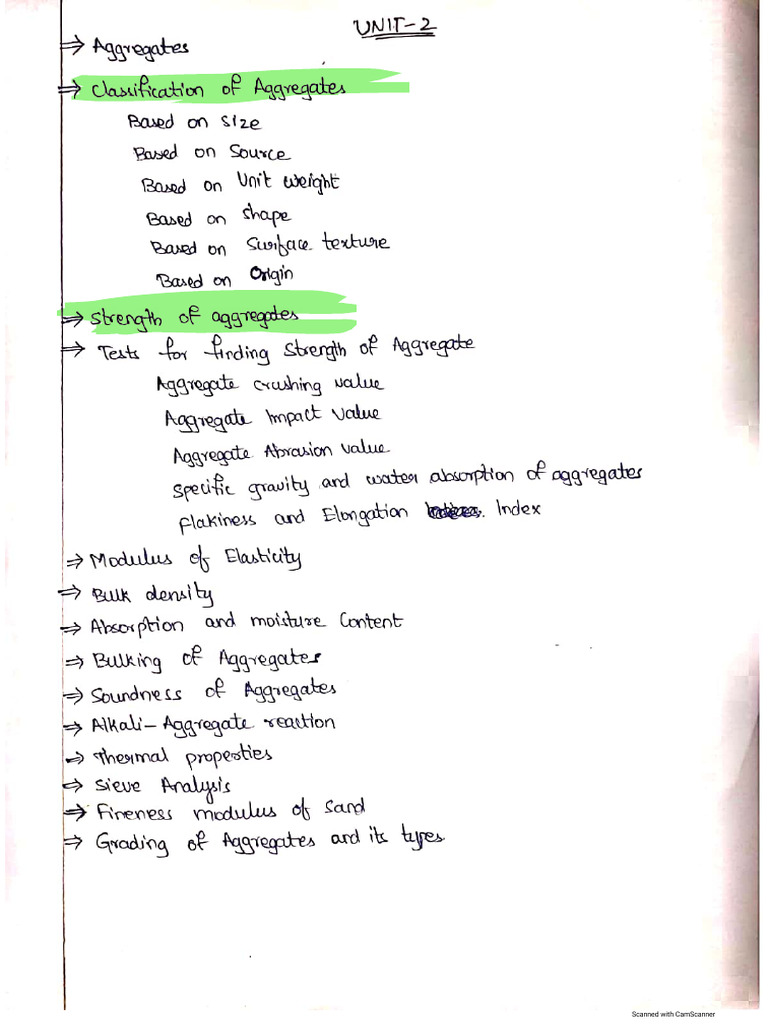 UNIT-2
⇒ Aggregates
⇒ Classification of Aggregates
Based on Size
Based on Source
Based on Unit weight
Based on Shape
Based on Surface texture
Based on Origin
⇒ Strength of aggregates
⇒ Tests for finding Strength of Aggregate
Aggregate crushing value
Aggregate Impact value
Aggregate Abrasion value
Specific gravity and water absorption of aggregates
Flakiness and Elongation Index
⇒ Modulus of Elasticity
⇒ Bulk density
⇒ Absorption and moisture Content
⇒ Bulking of Aggregates
⇒ Soundness of Aggregates
⇒ Alkali-Aggregate reaction
⇒ Thermal properties
⇒ Sieve Analysis
⇒ Fineness modulus of Sand
⇒ Grading of Aggregates and its types
Scanned with CamScanner